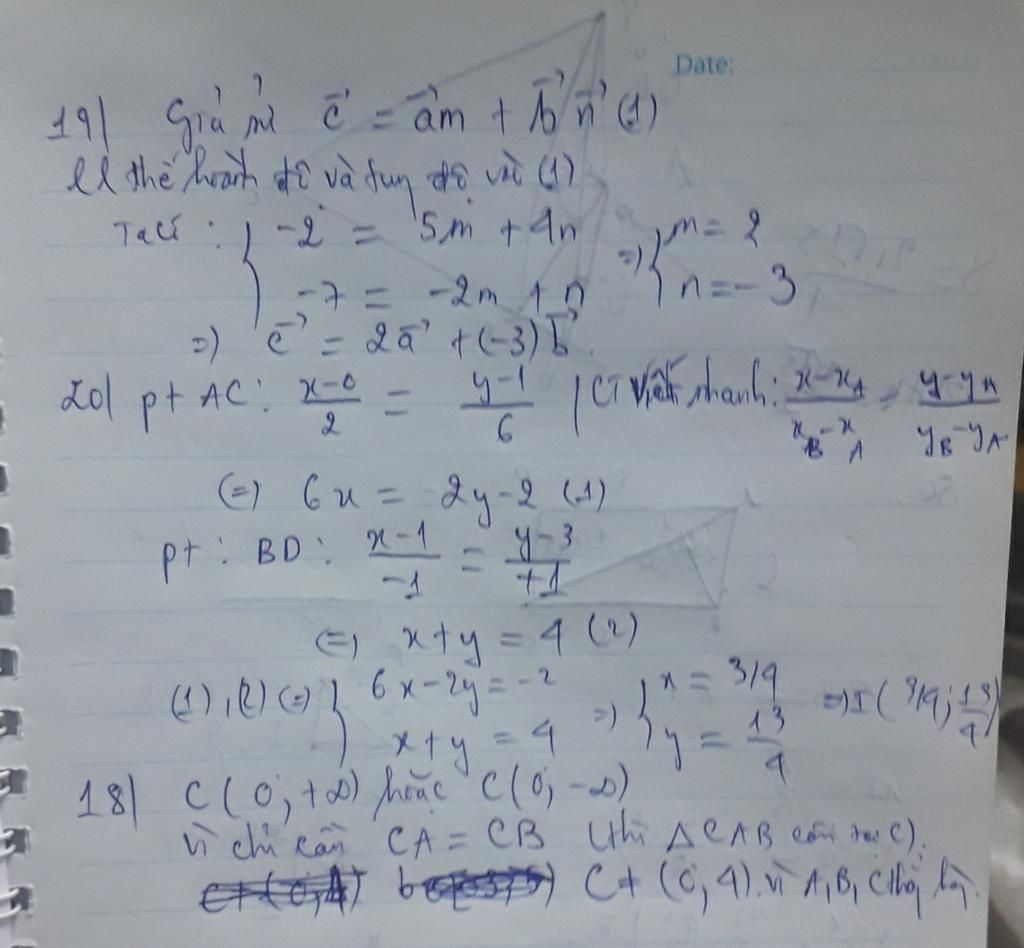 Date:
19| Giả sử c⃗ = a⃗m + b⃗n⃗ (1)
thế hoành độ và tung độ vào (1)
Ta có : { -2 = 5m + 4n => { m = 2
-7 = -2m + n n = -3
=> c⃗ = 2a⃗ + (-3)b⃗
20| pt AC: (x-0)/2 = (y-1)/6 | CT viết nhanh: (x-x_A)/(x_B-x_A) = (y-y_A)/(y_B-y_A)
(=) 6x = 2y-2 (1)
pt : BD : (x-1)/-1 = (y-3)/+1
(=) x+y = 4 (2)
(1),(2) (=) { 6x-2y = -2 => { x = 3/4 => I(3/4; 13/4)
x+y = 4 y = 13/4
18| C(0; +∞) hoặc C(0; -∞)
vì chỉ cần CA = CB (thì △CAB cân tại C).
C ≠ (0,4). vì A, B, C thẳng hàng.